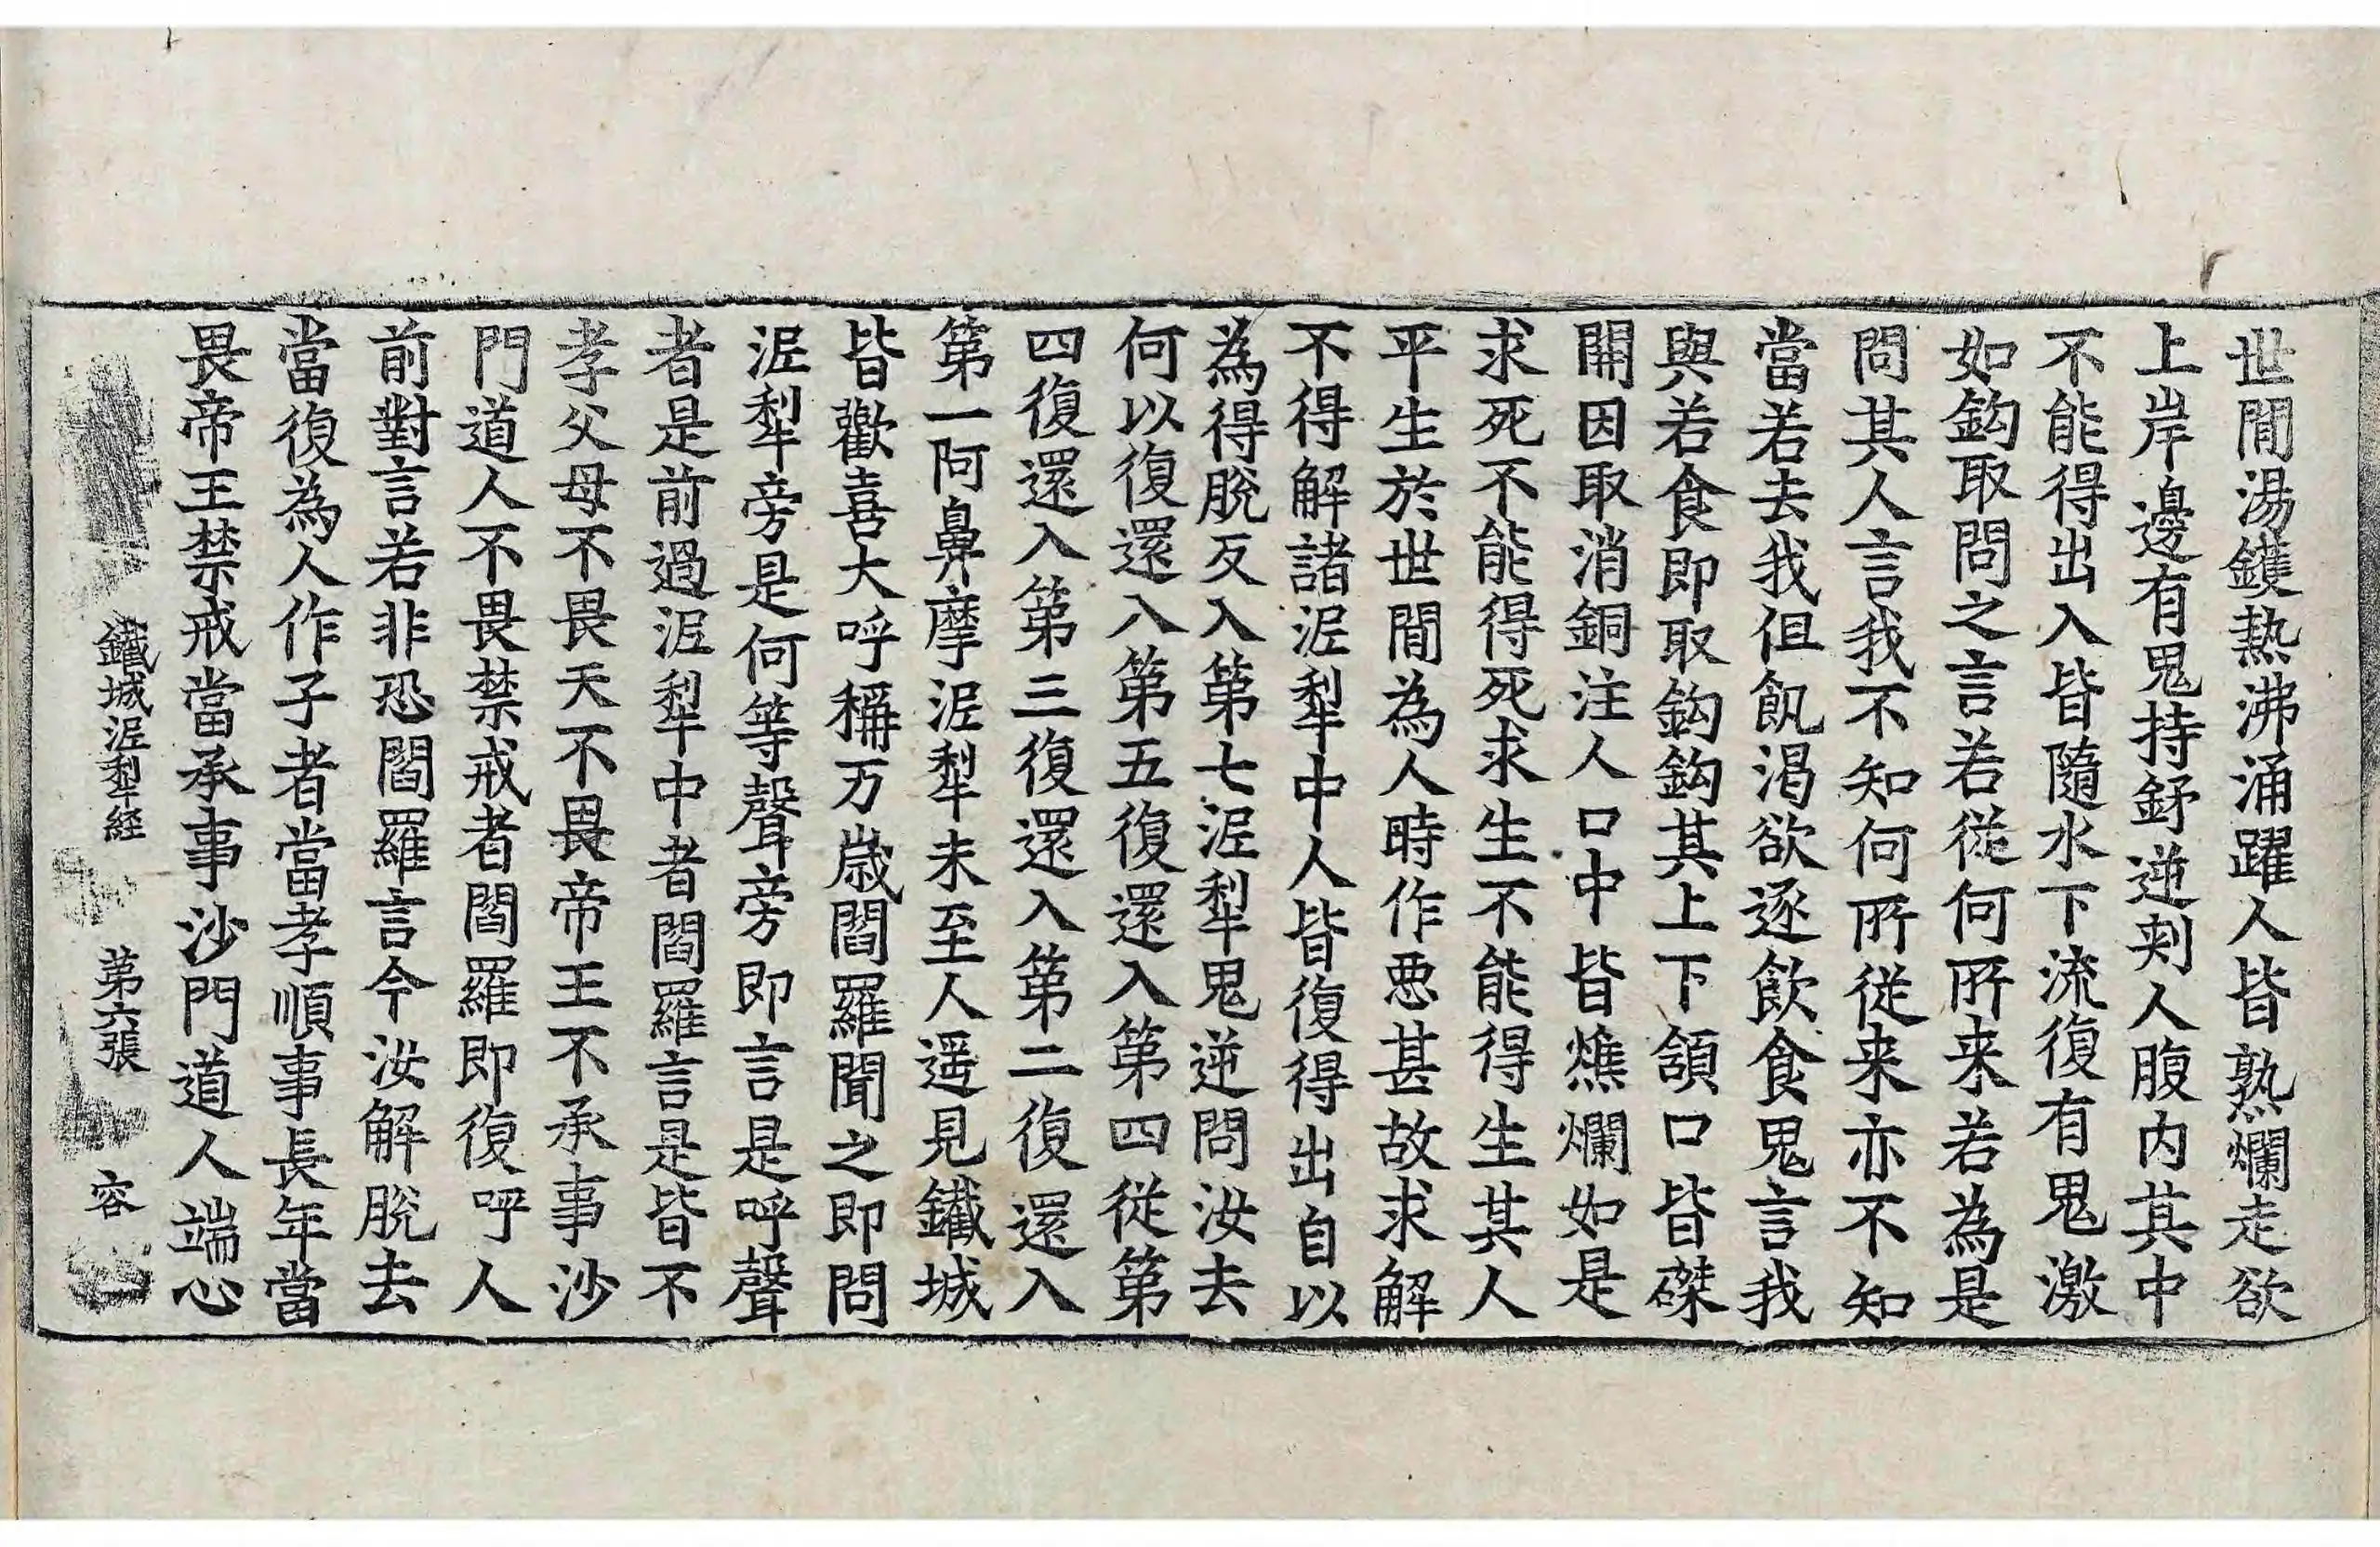 世閒湯鑊熱沸涌躍人皆熟爛走欲
上岸邊有鬼持釪逆刺人腹内其中
不能得出入皆隨水下流復有鬼激
如鈎取問之言若從何所来若為是
問其人言我不知何所從来亦不知
當若去我但飢渇欲逐飲食鬼言我
與若食即取鈎鈎其上下頷口皆磔
開因取消銅注人口中皆燋爛如是
求死不能得死求生不能得生其人
平生於世閒為人時作悪甚故求解
不得解諸泥犁中人皆復得出自以
為得脫反入第七泥犁鬼逆問汝去
何以復還入第五復還入第四從第
四復還入第三復還入第二復還入
第一阿鼻摩泥犁未至人遥見鐵城
皆歡喜大呼稱万歲閻羅聞之即問
泥犁旁是何等聲旁即言是呼聲
者是前過泥犁中者閻羅言是皆不
孝父母不畏天不畏帝王不承事沙
門道人不畏禁戒者閻羅即復呼人
前對言若非恐閻羅言今汝解脫去
當復為人作子者當孝順事長年當
畏帝王禁戒當承事沙門道人端心
鐵城泥犁経 第六張 容